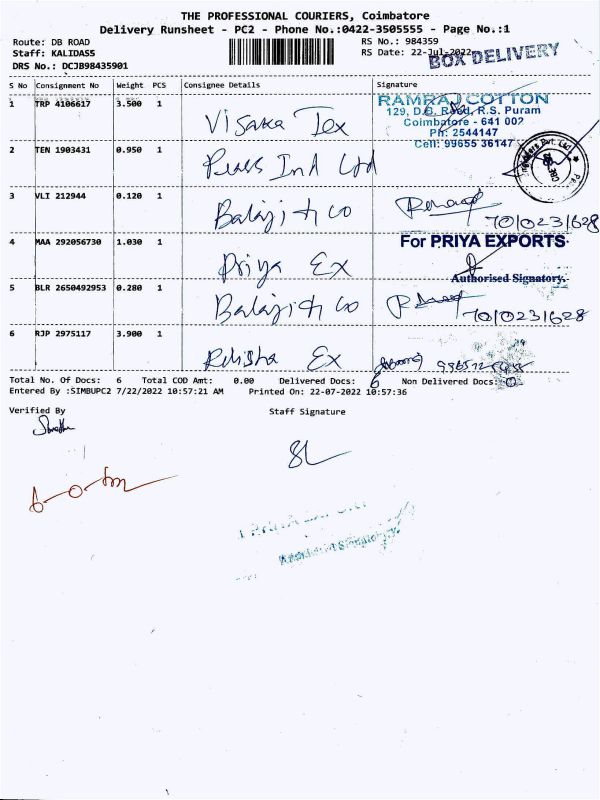 THE PROFESSIONAL COURIERS, Coimbatore
Delivery Runsheet - PC2 - Phone No.:0422-3505555 - Page No.:1
Route: DB ROAD RS No.: 984359
Staff: KALIDASS RS Date: 22-Jul-2022
BOX DELIVERY
DRS No.: DCJB98435901
S No Consignment No Weight PCS Consignee Details Signature
1 TRP 4100617 3.500 1 Visaka Tex
RAMRAJ COTTON
129, D.B. Road, R.S. Puram
Coimbatore - 641 002
Ph: 2544147
Cell: 99655 36147
2 TEN 1903431 0.950 1 Ind Ltd
3 VLI 212944 0.120 1 Balaji & co 7010231628
4 MAA 292056730 1.030 1 Priya Ex
For PRIYA EXPORTS
Authorised Signatory.
5 BLR 2650492953 0.280 1 Balaji & co 7010231628
6 RJP 2975117 3.900 1 Ex
Total No. Of Docs: 6 Total COD Amt: 0.00 Delivered Docs: 6 Non Delivered Docs: 0
Entered By :SIMBUPC2 7/22/2022 10:57:21 AM Printed On: 22-07-2022 10:57:36
Verified By Staff Signature